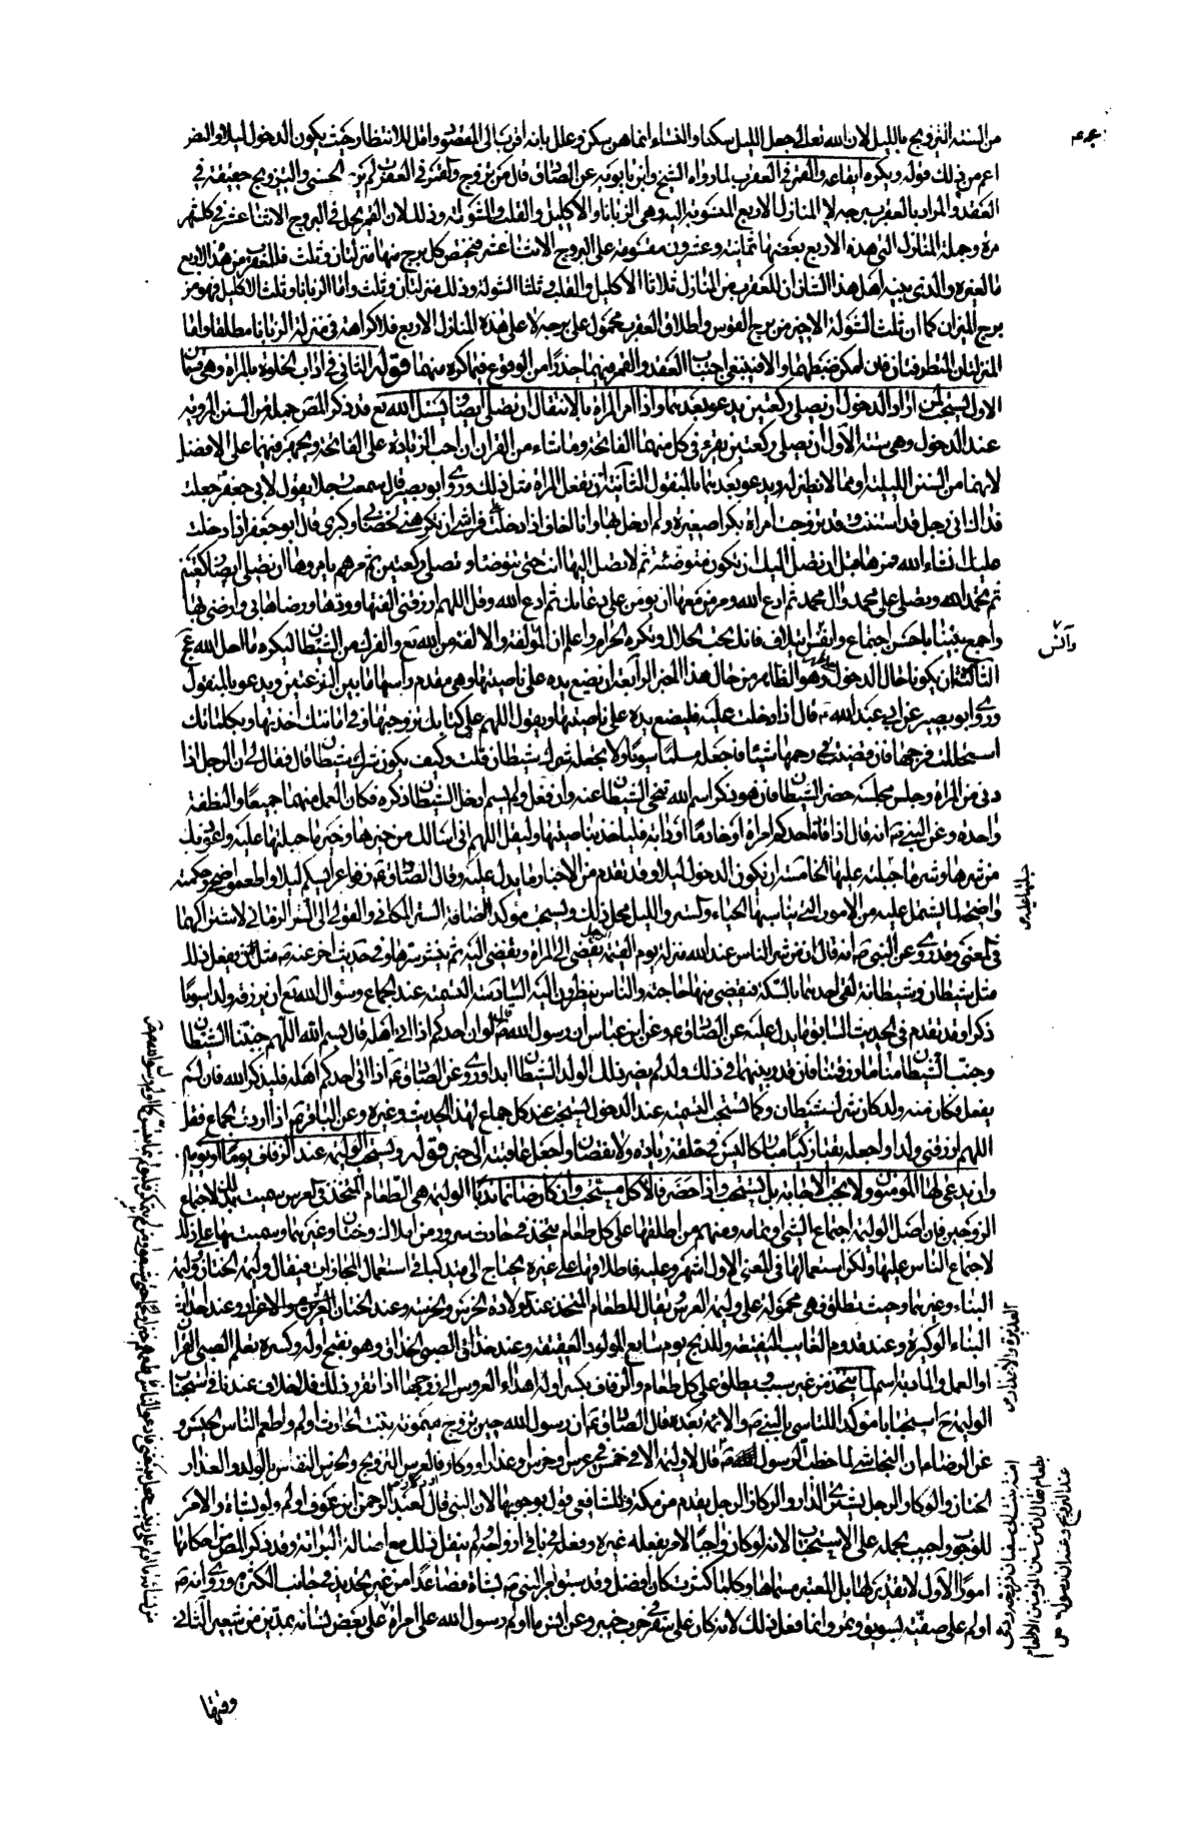 من السنه التزويج بالليل لان الله تعالى جعل الليل سكنا والنساء انما هن سكن وعلل بانه اقرب الى المقصود واقل للانتظار حيث يكون الدخول ليلا والنص
اعم من ذلك قوله ويكره ايقاعه والقمر في العقرب لما رواه الشيخ وابن بابويه عن الصادق قال من تزوج والقمر في العقرب لم ير الحسنى والتزويج حقيقة في
العقد والمراد بالعقرب برجه لا المنازل الاربع المنسوبة اليه وهي الزبانا والاكليل والقلب والشولة وذلك لان القمر يحل في البروج الاثنا عشر في كل شهر
مرة وجملة المنازل التي هذه الاربع بعضها ثمانية وعشرون مقسومة على البروج الاثنا عشر فيختص كل برج منها منزلتان وثلث فللعقرب من هذه الاربع
ما لغيره والذي بينه اهل هذا الشان ان للعقرب من المنازل ثلاثا الاكليل والقلب وثلثا الشولة وذلك منزلتان وثلث واما الزبانا وثلث الاكليل فهو من
برج الميزان كما ان ثلث الشولة الاخير من برج القوس واطلاق العقرب محمول على برجه لا على هذه المنازل الاربع فلا كراهة في منزلة الزبانا مطلقا واما
المنزلتان المتطرفتان فان امكن ضبطهما والا فينبغي اجتناب العقد والقمر فيهما حذرا من الوقوع فيما كره منهما قوله الثاني في اداب الخلوة بالمراة وهي قسمان
الاول يستحب لمن اراد الدخول ان يصلي ركعتين ويدعو بعدهما واذا امر المراة بالانتقال ان تصلي ايضا وتسئل الله تع قد ذكر المص جملة من السنن المروية
عند الدخول وهي ستة الاول ان يصلي ركعتين يقرء في كل منهما الفاتحة وما شاء من القران ان احب الزيادة على الفاتحة ويجهر فيهما على الافضل
لانهما من السنن الليلية ومما لا نظير له ويدعو بعدهما بالمنقول الثانية ان تفعل المراة مثل ذلك روى ابو بصير قال سمعت رجلا يقول لابي جعفر جعلت
فداك اني رجل قد اسننت وقد تزوجت امراة بكرا صغيرة ولم ادخل بها وانا اخاف اذا دخلت فراشي ان تكرهني لخضابي وكبري قال ابو جعفر اذا دخلت
عليك انشاء الله فمرها قبل ان تصل اليك ان تكون متوضئة ثم لا تصل اليها انت حتى تتوضا وتصلي ركعتين ثم مرهم يامروها ان تصلي ايضا ركعتين
ثم تحمد الله وتصلي على محمد وال محمد ثم ادع الله ومر من معها ان يومن على دعائك ثم ادع الله وقل اللهم ارزقني الفتها وودها ورضاها بي وارضني بها
واجمع بيننا باحسن اجتماع وانفس ايتلاف فانك تحب الحلال وتكره الحرام واعلم ان المؤلفة والالفة من الله تع والفرك من الشيطان ليكره ما احل الله عج
الثالثة ان يكونا حال الدخول وهو الظاهر من حال هذا الخبر الرابعة ان يضع يده على ناصيتها وهي مقدم راسها ما بين النزعتين ويدعو بالمنقول
روى ابو بصير عن ابي عبد الله ع قال اذا دخلت عليه فليضع يده على ناصيتها ويقول اللهم على كتابك تزوجتها وفي امانتك اخذتها وبكلماتك
استحللت فرجها فان قضيت في رحمها شيئا فاجعله مسلما سويا ولا تجعله شرك شيطان قلت وكيف يكون شرك شيطان قال فقال لي ان الرجل اذا
دنى من المراة وجلس مجلسه حضر الشيطان فان هو ذكر اسم الله تنحى الشيطان عنه وان فعل ولم يسم ادخل الشيطان ذكره فكان العمل منهما جميعا والنطفة
واحدة وعن النبي ص انه قال اذا افاد احدكم امراة او خادما او دابة فلياخذ بناصيتها وليقل اللهم اني اسالك من خيرها وخير ما جبلتها عليه واعوذ بك
من شرها وشر ما جبلته عليها الخامسة ان يكون الدخول ليلا وقد تقدم من الاخبار ما يدل عليه وقال الصادق ع زفوا عرائسكم ليلا واطعموا ضحى وحكمته
واضحة لما يشتمل عليه من الامور التي يناسبها الحياء والستر والليل محل ذلك ويستحب مؤكدا اضافة الستر المكاني والقولي الى الستر الزماني لاشتراكهما
في المعنى وقد روي عن النبي ص انه قال ان من شر الناس عند الله منزلة يوم القيمة الرجل يفضي الى المراة وتفضي اليه ثم ينشر سرها وفي حديث اخر عنه ص مثل من يفعل ذلك
مثل شيطان وشيطانة لقي احدهما بالسكة فيقضي منها حاجته والناس ينظرون اليه السادسة التسمية عند الجماع وسؤال الله تع ان يرزقه ولدا سويا
ذكرا وقد تقدم في الحديث السابق ما يدل عليه عن الصادق ع وعن ابن عباس ان رسول الله ص قال لو ان احدكم اذا اتى اهله قال بسم الله اللهم جنبنا الشيطان
وجنب الشيطان ما رزقتنا فان قدر بينهما في ذلك ولد لم يضر ذلك الولد الشيطان ابدا وروي عن الصادق ع اذا اتى احدكم اهله فليذكر الله فان لم
يفعل وكان منه ولد كان شرك شيطان وكما تستحب التسمية عند الدخول تستحب عند كل جماع لهذا الحديث وغيره وعن الباقر ع اذا اردت الجماع فقل
اللهم ارزقني ولدا واجعله تقيا زكيا مباركا ليس في خلقه زيادة ولا نقصان واجعل عاقبته الى خير قوله ويستحب الوليمة عند الزفاف يوما او يومين
وان يدعى لها المؤمنون ولا تجب الاجابة بل تستحب واذا حضر فالاكل مستحب وان كان صائما ندبا الوليمة هي الطعام المتخذ في العرس سميت بذلك لاجتماع
الزوجين فان اصل الوليمة اجتماع الشيء وتمامه ومنهم من اطلقها على كل طعام يتخذ في حادث سرور من املاك وختان وغيرهما وسميت بها على ذلك
لاجتماع الناس عليها ولكن استعمالها في المعنى الاول اشهر وعليه فاطلاقها على غيره يحتاج الى قيد كما في استعمال المجازات فيقال وليمة الختان ووليمة
البناء وغيرهما وحيث تطلق فهي محمولة على وليمة العرس ويقال للطعام المتخذ عند الولادة الخرس والخرسة وعند الختان والاعذار وعند احداث
البناء الوكيرة وعند قدوم الغائب النقيعة وللذبح يوم سابع المولود العقيقة وعند حذاق الصبي الحذاق وهو بفتح اوله وكسره تعلم الصبي القران
او العمل والمادبة اسم لما يتخذ من غير سبب ويطلق على كل طعام والزفاف بكسر اوله اهداء العروس الى زوجها اذا تقرر ذلك فلا خلاف عندنا في استحباب
الوليمة ح استحبابا مؤكدا للتاسي بالنبي ص والائمة بعده قال الصادق ع ان رسول الله حين تزوج ميمونة بنت الحارث اولم واطعم الناس الحيس و
عن الرضا ع ان النجاشي لما خطب لرسول الله ص قال لا وليمة الا في خمس في عرس او خرس او عذار او وكار فالعرس التزويج والخرس النفاس بالولد والعذار
الختان والوكار الرجل يشتري الدار والركاز الرجل يقدم من مكة وللشافعي قول بوجوبها لان النبي قال لعبد الرحمن ابن عوف اولم ولو بشاة والامر
للوجوب واجيب بحمله على الاستحباب لانه لو كان واجبا لامر بفعله غيره وفعله في باقي ازواجه ولم ينقل ذلك مع اصالة البرائة وقد ذكر المص من احكامها
امورا الاول لا تقدير لها بل المعتبر مسماها وكلما كثرت كان افضل وقد سبق امر النبي ص بشاة فصاعدا من غير تحديد في جانب الكثرة وروي انه ص
اولم على صفية بسويق وتمر وانما فعل ذلك لانه كان على سفر في حرب خيبر وعن انس ما اولم رسول الله على امراة على بعض نسائه بمدين من شعير الثاني
وانس
جبلتها عليه ص
العذيرة والاعذار ص
ووقتها